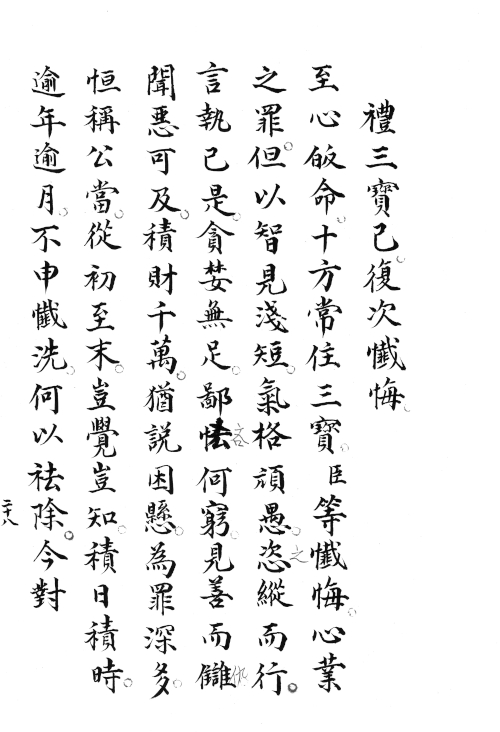 禮三寶已。復次懺悔。
至心皈命。十方常住三寶。臣等懺悔。心業
之罪。但以智見淺短。氣格頑愚。恣縱而行。
言執己是。貪婪無足。鄙恡何窮。見善而讎。
聞惡可及。積財千萬。猶說困懸。為罪深多。
恒稱公當。從初至末。豈覺豈知。積日積時。
逾年逾月。不申懺洗。何以祛除。今對
二十八